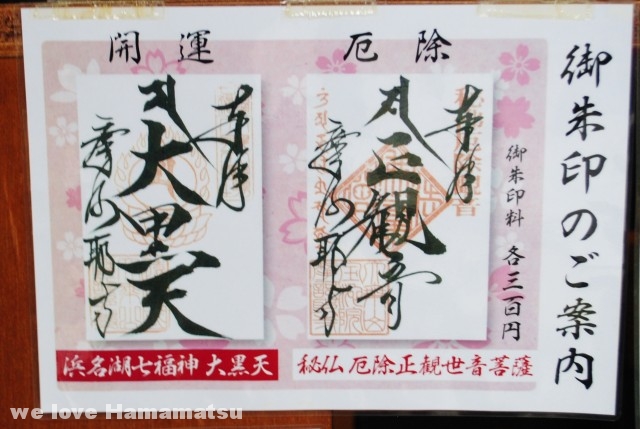 御朱印のご案内
御朱印料 各三百円
厄除
奉拝
正観音
摩訶耶寺
秘仏 厄除正観世音菩薩
開運
奉拝
大黒天
摩訶耶寺
浜名湖七福神 大黒天
we love Hamamatsu